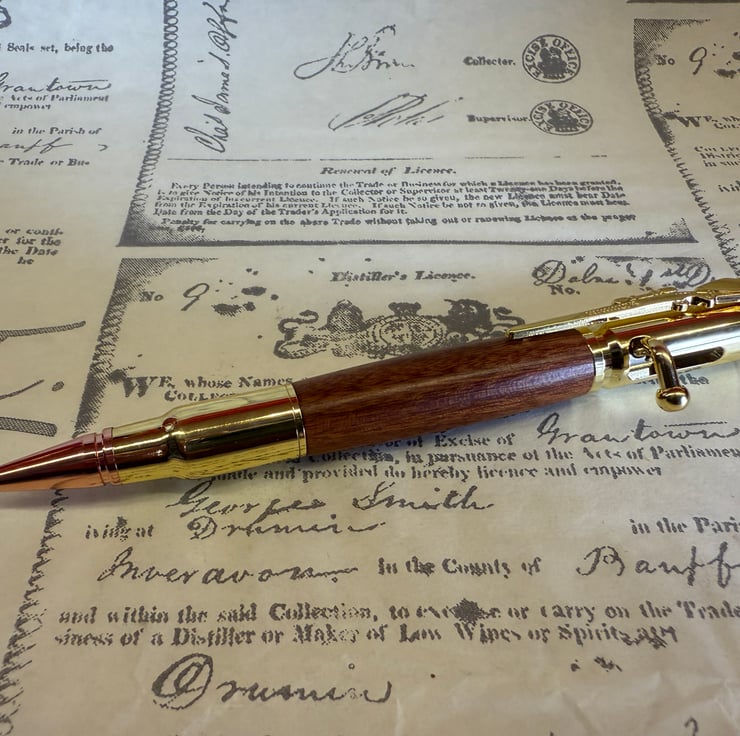 Seals set, being the
Grantown
Acts of Parliament
empower
in the Parish of
Trade or Bus
or conti-
er for the
the Date
be
Collector.
EXCISE OFFICE
Supervisor.
EXCISE OFFICE
Renewal of Licence.
Every Person intending to continue the Trade or Business for which a Licence has been granted,
is to give Notice of his Intention to the Collector or Supervisor at least Twenty-one Days before the
Expiration of his current Licence. If such Notice be so given, the new Licence must bear Date
from the Expiration of his current Licence. If such Notice be not so given, the Licence must bear
Date from the Day of the Trader's Application for it.
Penalty for carrying on the above Trade without taking out or renewing Licence as the proper
No 9
Distiller's Licence.
No 9
No.
WE, whose Names
COLL
or of Excise of Grantown
Collection, in pursuance of the Acts of Parliamen
made and provided do hereby licence and empower
George Smith
iving at Drumin in the Pari
Inveravon in the County of Banff
and within the said Collection, to exercise or carry on the Trade
siness of a Distiller or Maker of Low Wines or Spirits, at
Drumin